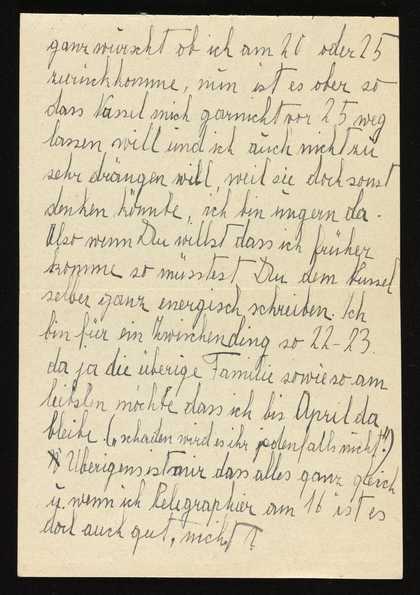 ganz wurscht ob ich am 20 oder 25
zurückkomme, nun ist es aber so
dass Kassel mich garnicht vor 25 weg
lassen will und ich auch nicht zu
sehr drängen will, weil sie doch sonst
denken könnte, ich bin ungern da.
Also wenn Du willst dass ich früher
komme so müsstest Du dem
selber ganz energisch schreiben. Ich
bin für ein Zwischending so 22-23
da ja die überige Familie sowieso am
liebsten möchte dass ich bis April da
bleibe (" schaden wird es ihr jedenfalls nicht!")
Überigens ist mir dass alles ganz gleich
u. wenn ich Telegraphier am 16 ist es
doch auch gut, nicht?